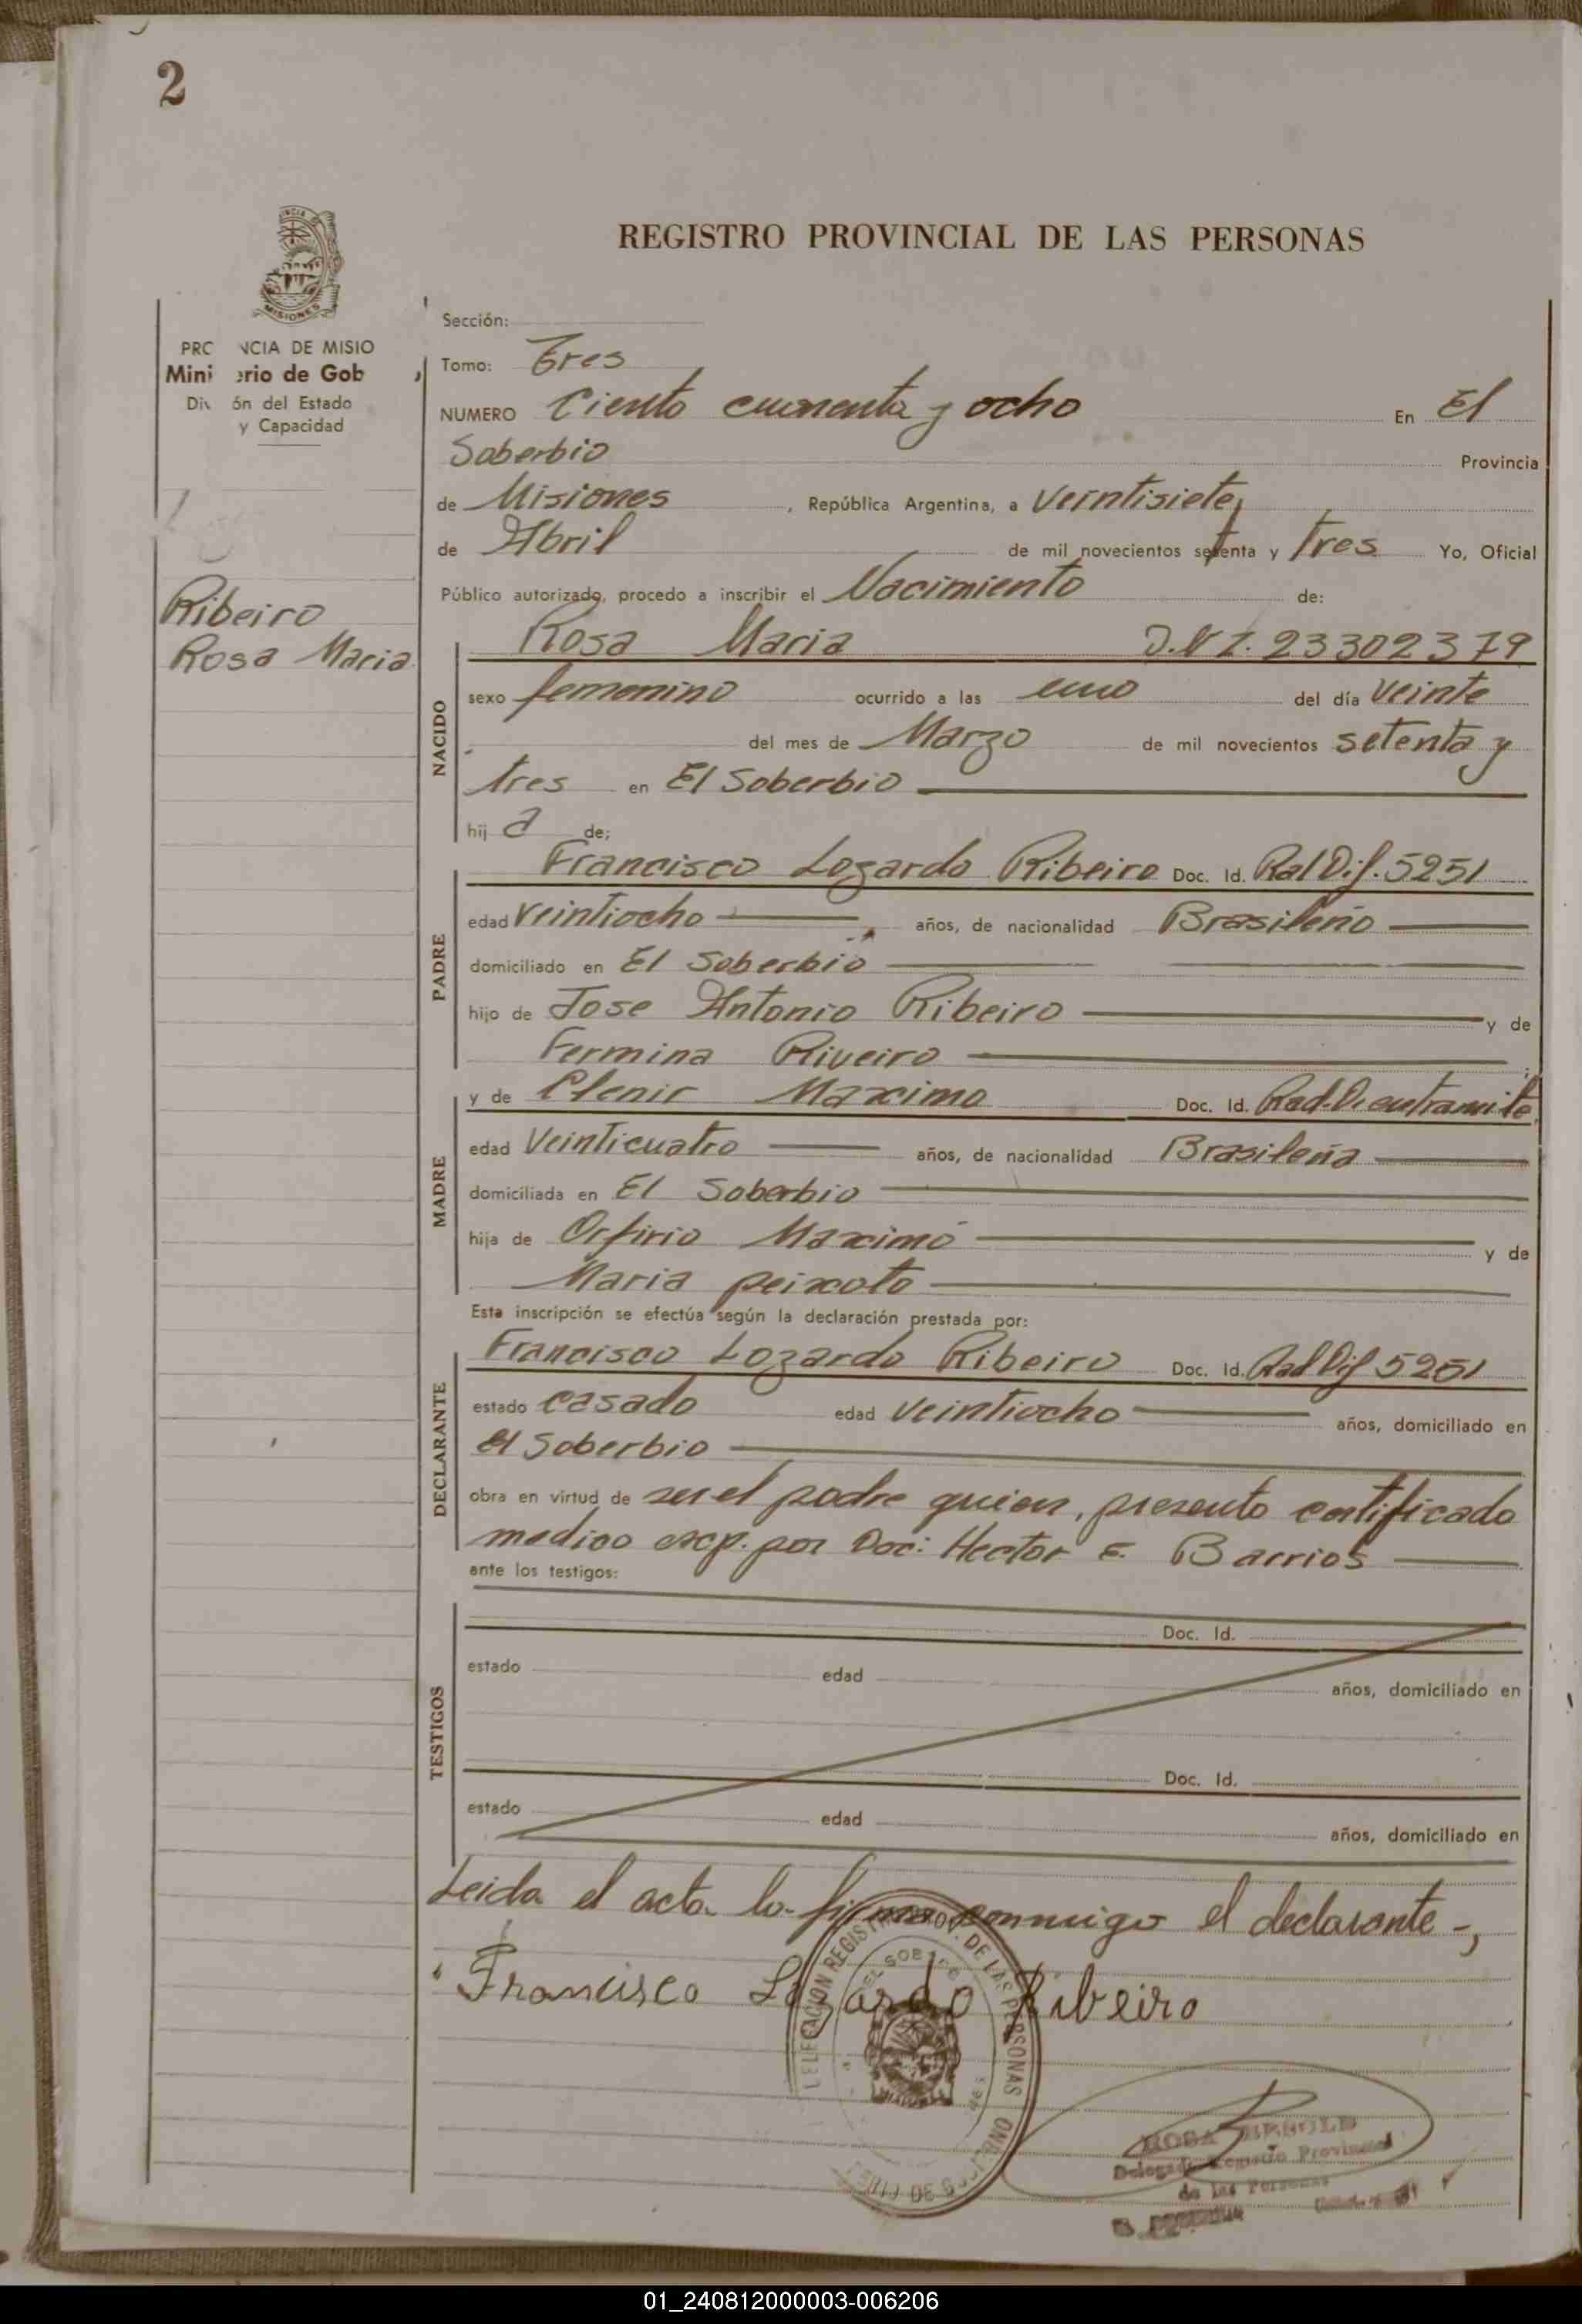 2
REGISTRO PROVINCIAL DE LAS PERSONAS
MISIONES
PRO NCIA DE MISIO
Mini erio de Gob
Div ón del Estado
y Capacidad
Ribeiro
Rosa Maria
Sección:
Tomo: Tres
NUMERO Ciento cuarenta y ocho En El
Soberbio Provincia
de Misiones, República Argentina, a Veintisiete
de Abril de mil novecientos setenta y tres Yo, Oficial
Público autorizado, procedo a inscribir el Nacimiento de:
NACIDO
Rosa Maria D.N.I. 23302379
sexo femenino ocurrido a las uno del día Veinte
del mes de Marzo de mil novecientos setenta y
tres en El Soberbio
hij a de;
PADRE
Francisco Lozardo Ribeiro Doc. Id. Rad Dif. 5251
edad Veintiocho años, de nacionalidad Brasileño
domiciliado en El Soberbio
hijo de Jose Antonio Ribeiro y de
Fermina Riveiro
MADRE
y de Elenir Maximo Doc. Id. Rad. D. entramite
edad Veinticuatro años, de nacionalidad Brasileña
domiciliada en El Soberbio
hija de Orfirio Maximo y de
Maria peixoto
Esta inscripción se efectúa según la declaración prestada por:
DECLARANTE
Francisco Lozardo Ribeiro Doc. Id. Rad Dif 5251
estado casado edad Veintiocho años, domiciliado en
El Soberbio
obra en virtud de ser el padre quien, presento certificado
medico exp. por Doc: Hector E. Barrios
ante los testigos:
TESTIGOS
Doc. Id.
estado edad años, domiciliado en
Doc. Id.
estado edad años, domiciliado en
Leida el acta la firma conmigo el declarante -,
Francisco Lozardo Ribeiro
DELEGACION REGISTRO PROV. DE LAS PERSONAS
EL SOBERBIO
ROSA
Delegada Registro Provincial
de las Personas
01_240812000003-006206